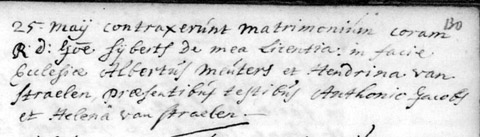 130
25. maij contraxerunt matrimonium coram
R d: Joe sijberts de mea Licentia: in facie
Ecclesiæ Albertus meuters et Hendrina van
straelen, præsentibus testibus Anthonio Jacobs
et Helena van straelen.